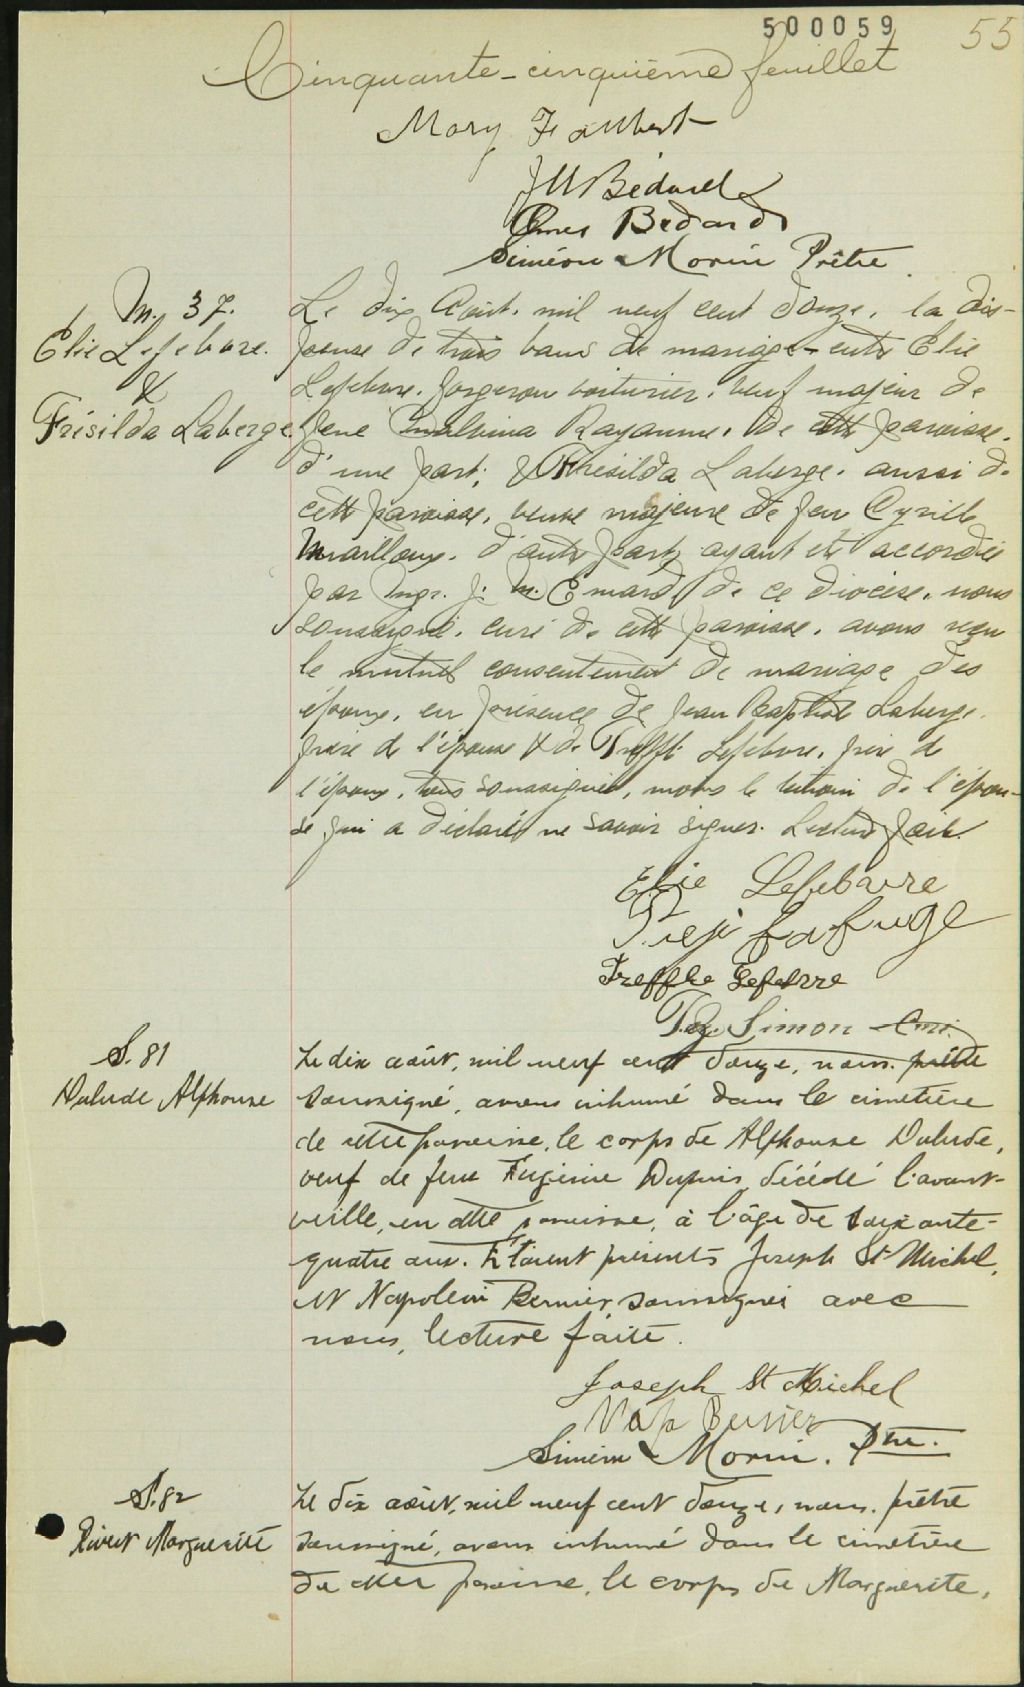 500059
55
Cinquante-cinquième feuillet
Mary F
J U Bédard
Omer Bedard
Siméon Morin Prêtre
M. 37.
Elie Lefebvre.
&
Frésilda Laberge.
Le dix Août, mil neuf cent douze, la dis-
pense de trois bans de mariage entre Elie
Lefebvre, forgeron voiturier, veuf majeur de
feue Malvina Rayanne, de cette paroisse,
d'une part; & Thrésilda Laberge, aussi de
cette paroisse, veuve majeure de feu Cyrille
Mailloux, d'autre part, ayant été accordée
par Mgr. J. M. Emard, de ce diocèse, nous
soussigné, curé de cette paroisse, avons reçu
le mutuel consentement de mariage des
époux, en présence de Jean Baptiste Laberge,
frère de l'épouse & de Treffle Lefebvre, frère de
l'époux, tous soussignés, moins le témoin de l'épou-
se qui a déclaré ne savoir signer. Lecture faite.
Elie Lefebvre
Treffle Lefebvre
Simon
S. 81
Dulude Alphonse
Le dix août, mil neuf cent douze, nous, prêtre
soussigné, avons inhumé dans le cimetière
de cette paroisse, le corps de Alphonse Dulude,
veuf de feue Eugénie Dupuis, décédé l'avant-
veille, en cette paroisse, à l'âge de soixante-
quatre ans. Etaient présents Joseph St Michel,
et Napoléon Bernier soussignés avec
nous, lecture faite.
Joseph St Michel
Nap Bernier
Siméon Morin. Ptre.
S. 82
Rivert Marguerite
Le dix août, mil neuf cent douze, nous, prêtre
soussigné, avons inhumé dans le cimetière
de cette paroisse, le corps de Marguerite,